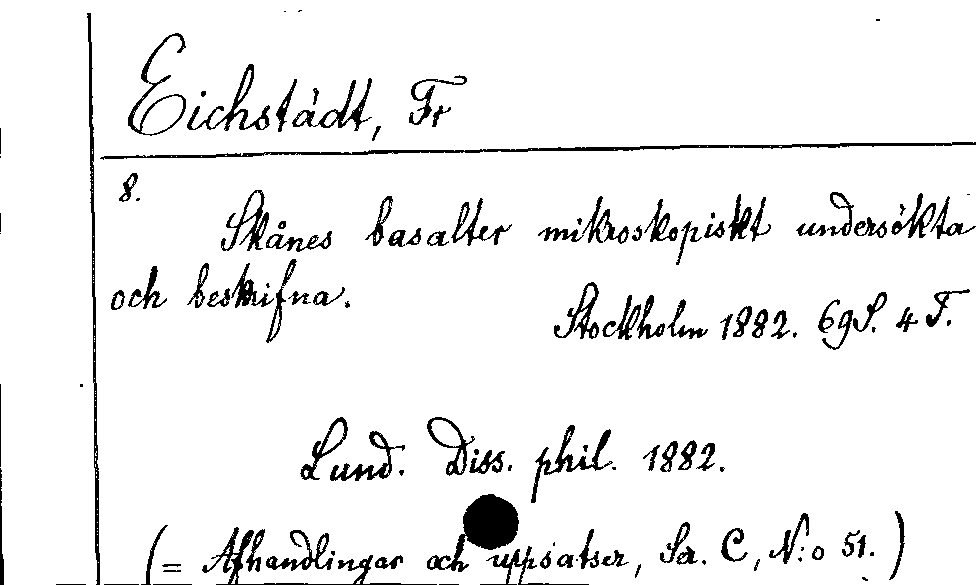 Eichstädt, Fr
8.
Skånes basalter mikroskopiskt undersökta
och beskrifna.
Stockholm 1882. 69 S. 4 T.
Lund. Diss. phil. 1882.
(= Afhandlingar och uppsatser, Ser. C, N:o 51.)